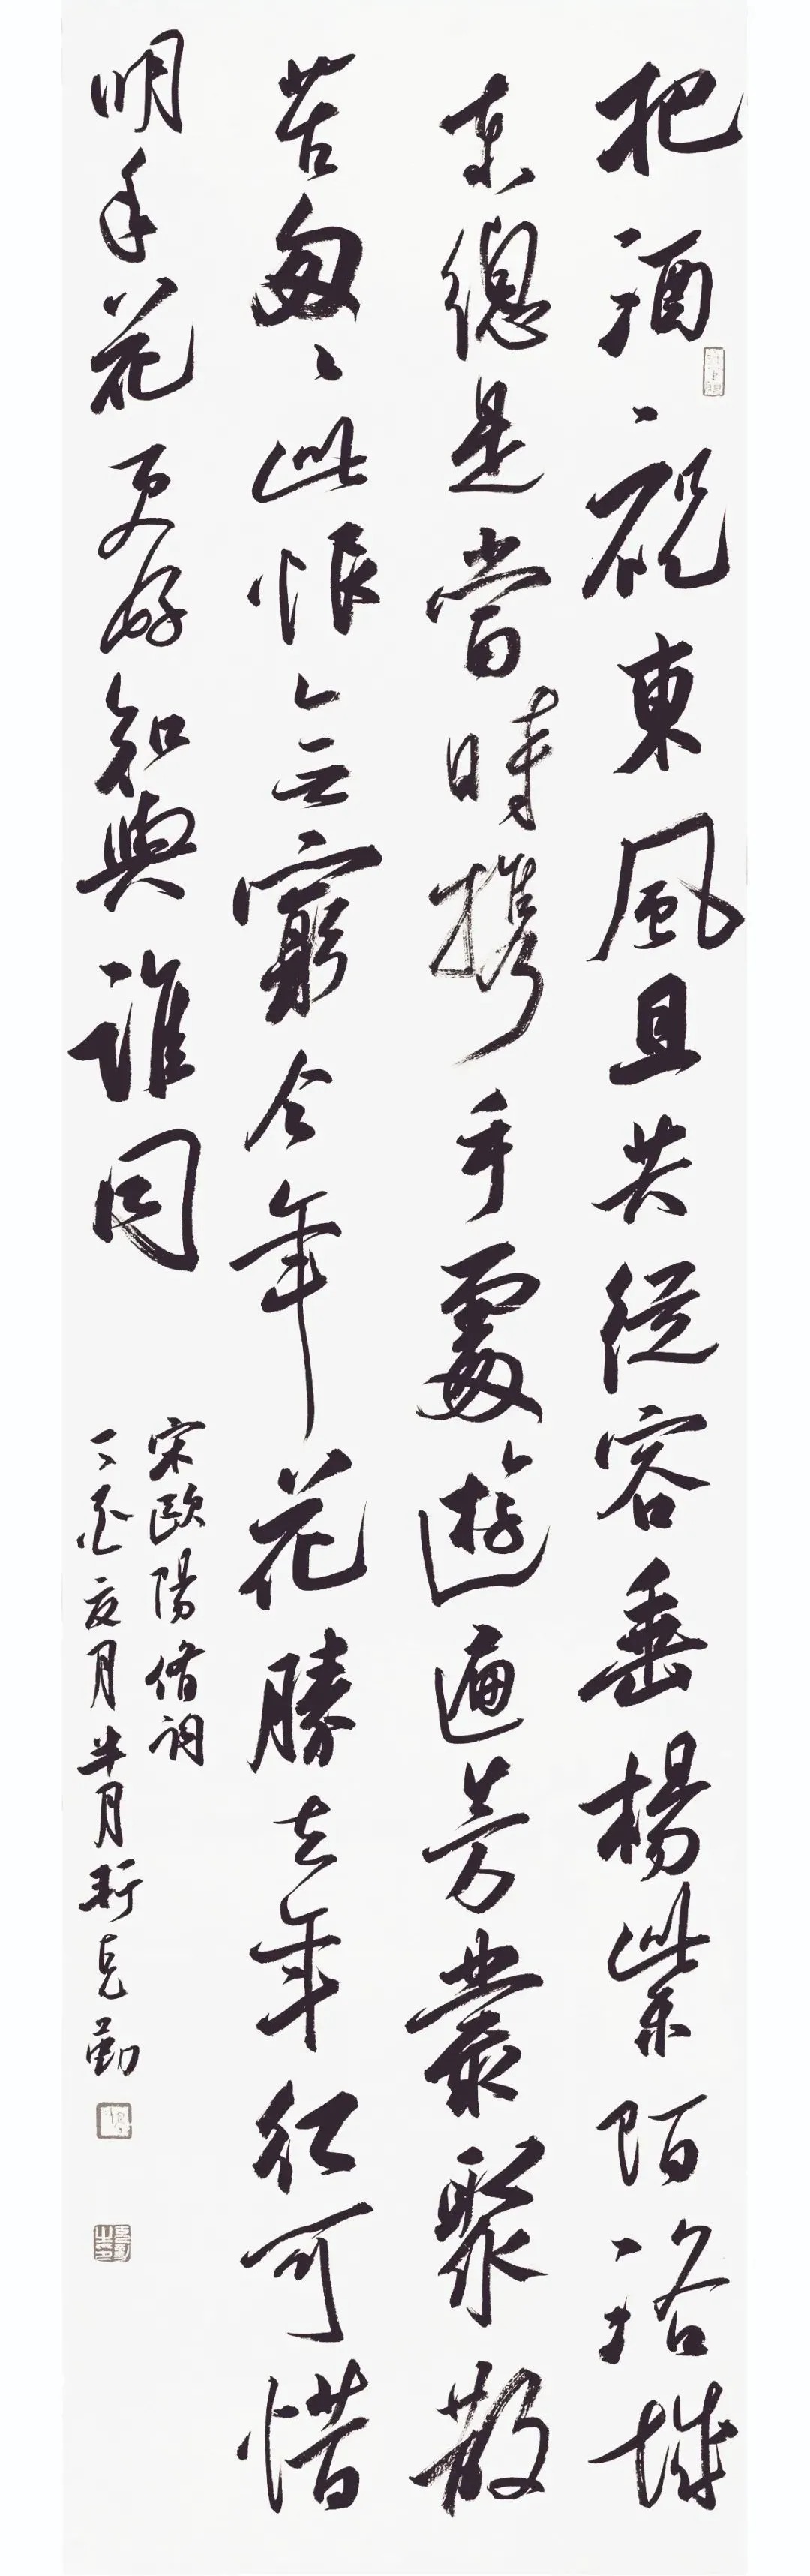 把酒祝東風且共從容垂楊紫陌洛城
東總是當時攜手處遊遍芳叢聚散
苦匆〻此恨無窮今年花勝去年紅可惜
明年花更好知與誰同
宋歐陽脩詞
丁酉夜月半月新克勤